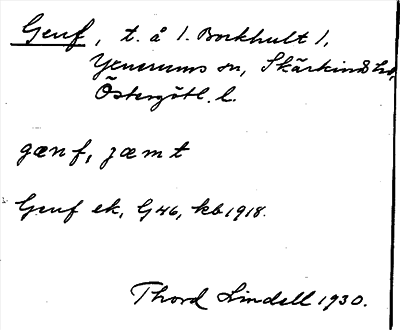 Genf, t. å l. Borkhult 1,
Yxnerums sn, Skärkinds hd,
Östergötl. l.
gænf, jæmt
Genf ek, G46, kb 1918.
Thord Lindell 1930.